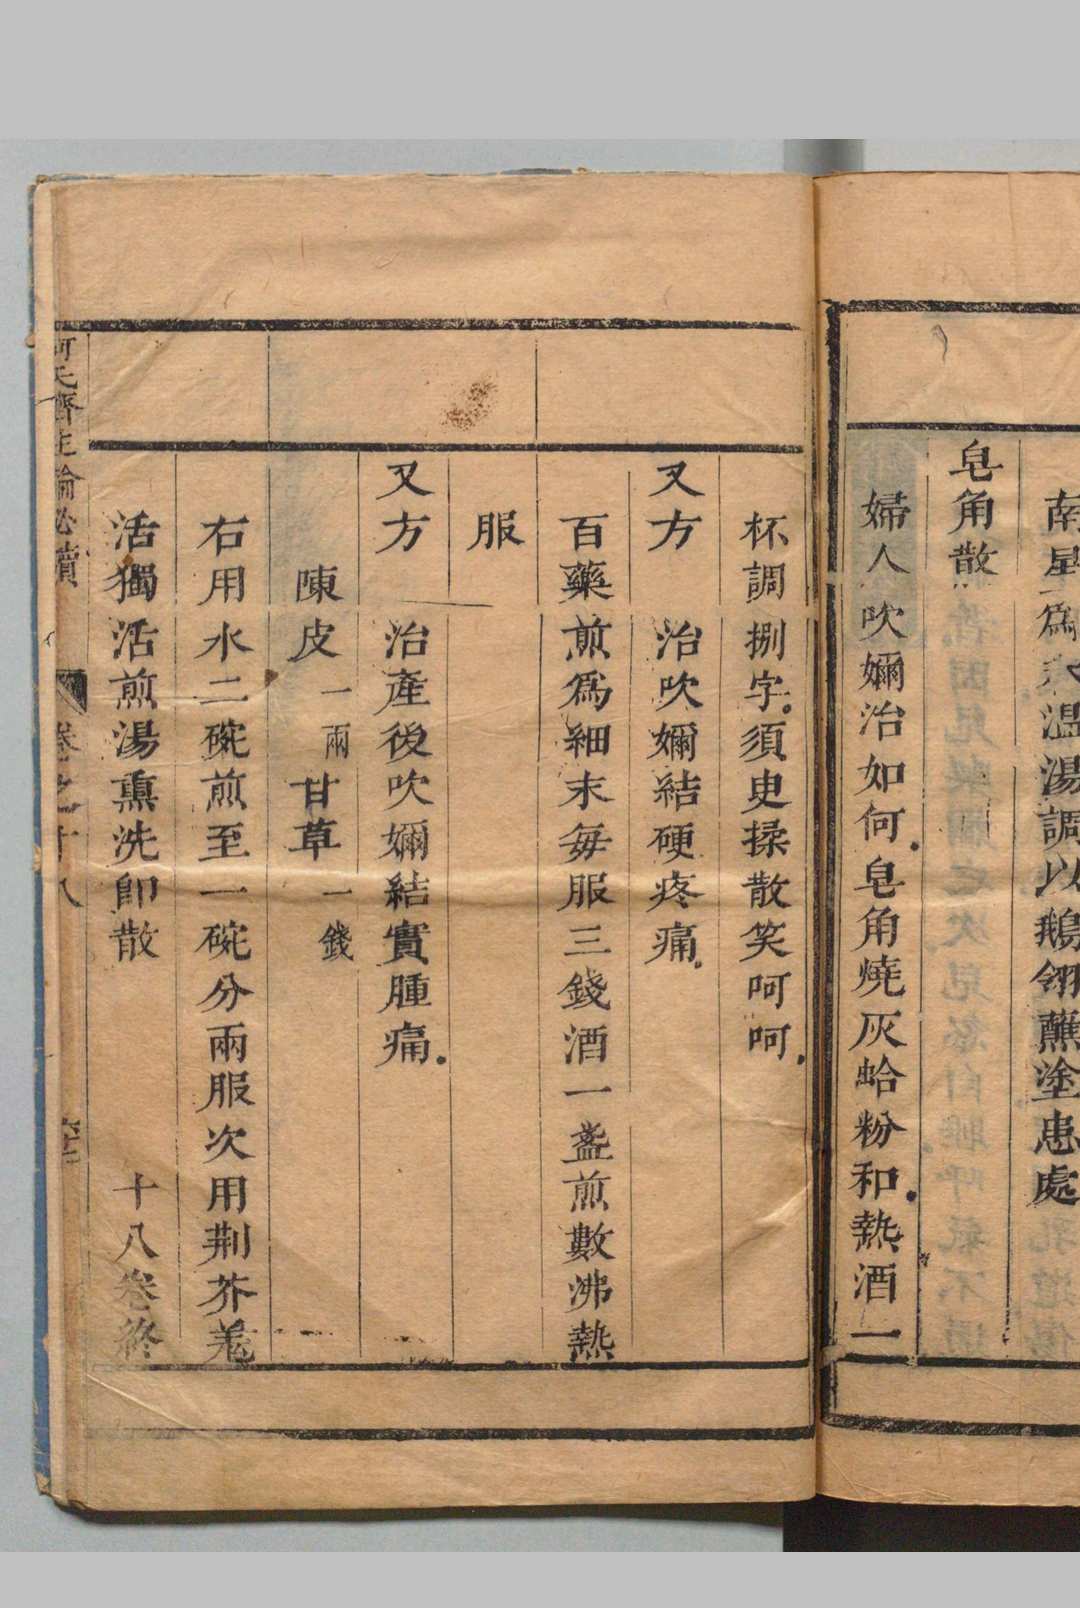 南星為末温湯調以鵝翎蘸塗患處
皂角散
婦人吹嬭治如何皂角燒灰蛤粉和熱酒一
杯調捌字須臾揉散笑呵呵
又方　治吹嬭結硬疼痛
百藥煎為細末每服三錢酒一盞煎數沸熱
服
又方　治產後吹嬭結實腫痛
陳皮一兩　甘草一錢
右用水二碗煎至一碗分兩服次用荆芥羗
活獨活煎湯熏洗即散
十八卷終
何氏濟生論必讀　卷之十八